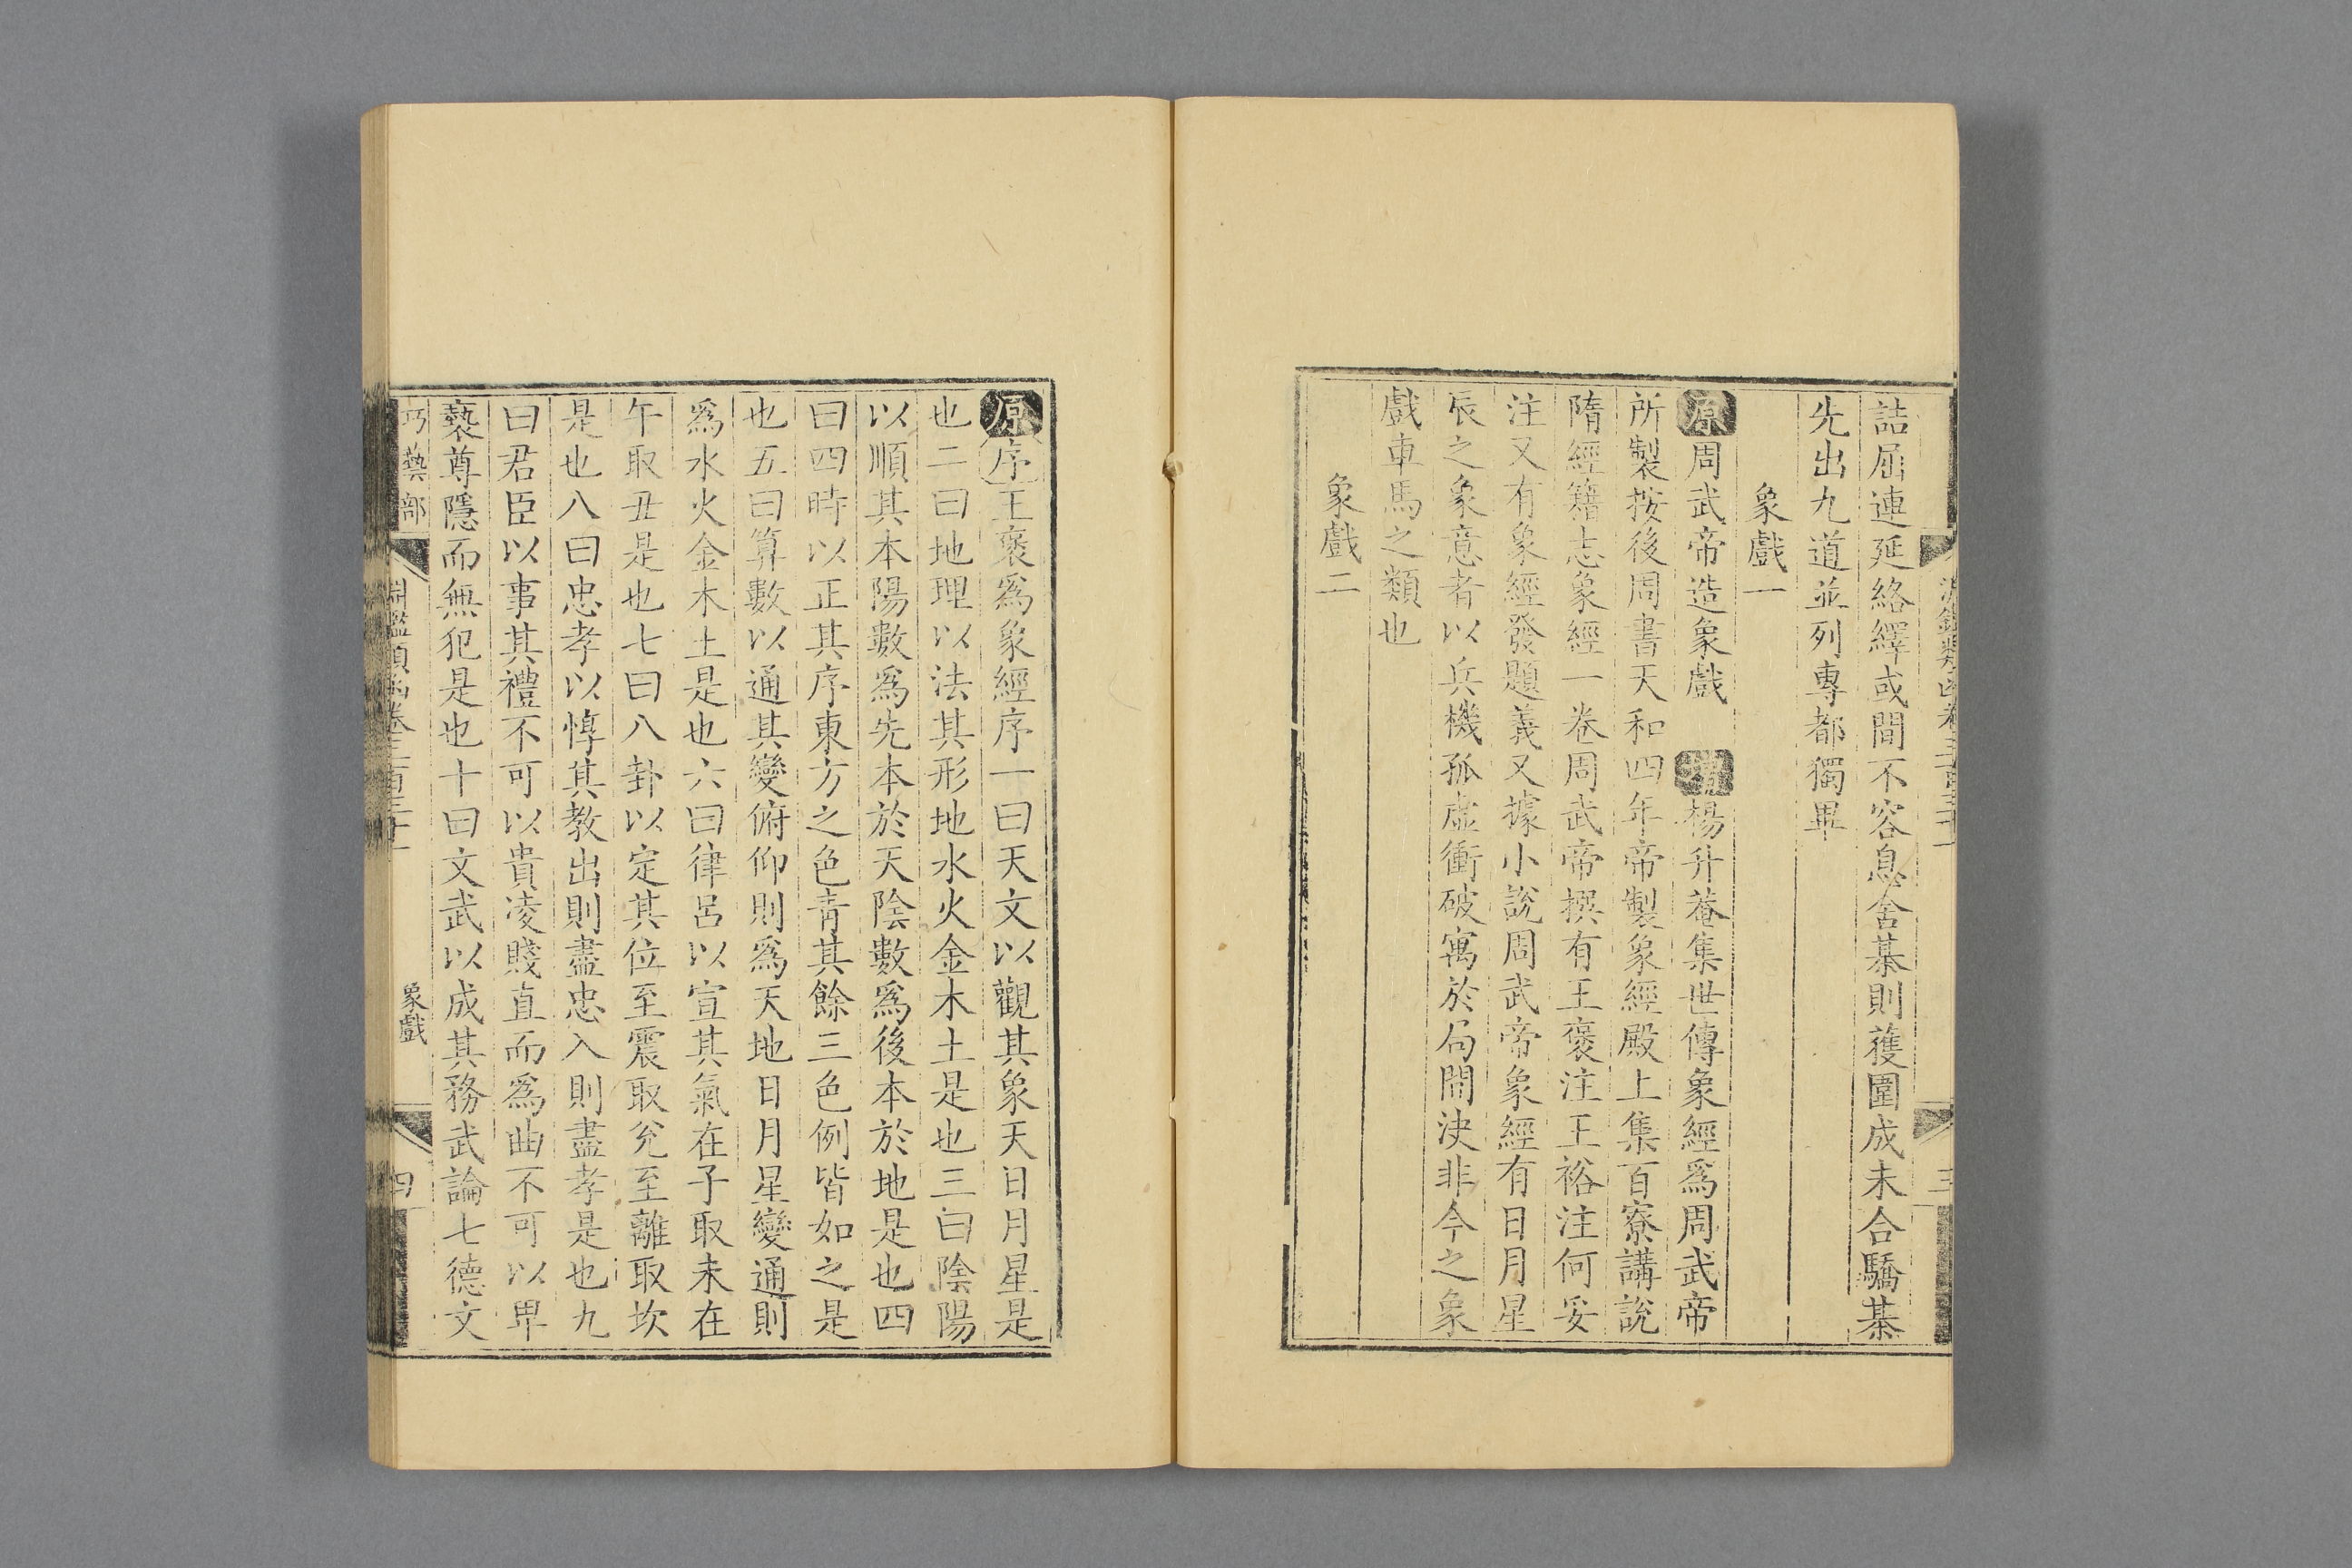 詰屈連延絡繹或間不容息舍棊則獲圍成未合驕棊
先出九道並列專都獨畢
象戲一
原周武帝造象戲 增楊升菴集世傳象經爲周武帝
所製按後周書天和四年帝製象經殿上集百寮講說
隋經籍志象經一卷周武帝撰有王褒注王裕注何妥
注又有象經發題義又據小說周武帝象經有日月星
辰之象意者以兵機孤虛衝破寓於局間決非今之象
戲車馬之類也
象戲二
原序王褒爲象經序一曰天文以觀其象天日月星是
也二曰地理以法其形地水火金木土是也三曰陰陽
以順其本陽數爲先本於天陰數爲後本於地是也四
曰四時以正其序東方之色青其餘三色例皆如之是
也五曰算數以通其變俯仰則爲天地日月星變通則
爲水火金木土是也六曰律呂以宣其氣在子取未在
午取丑是也七曰八卦以定其位至震取兊至離取坎
是也八曰忠孝以惇其教出則盡忠入則盡孝是也九
曰君臣以事其禮不可以貴凌賤直而爲曲不可以卑
褻尊隱而無犯是也十曰文武以成其務武論七德文
巧藝部 淵鑑類函卷三百三十 象戲 四